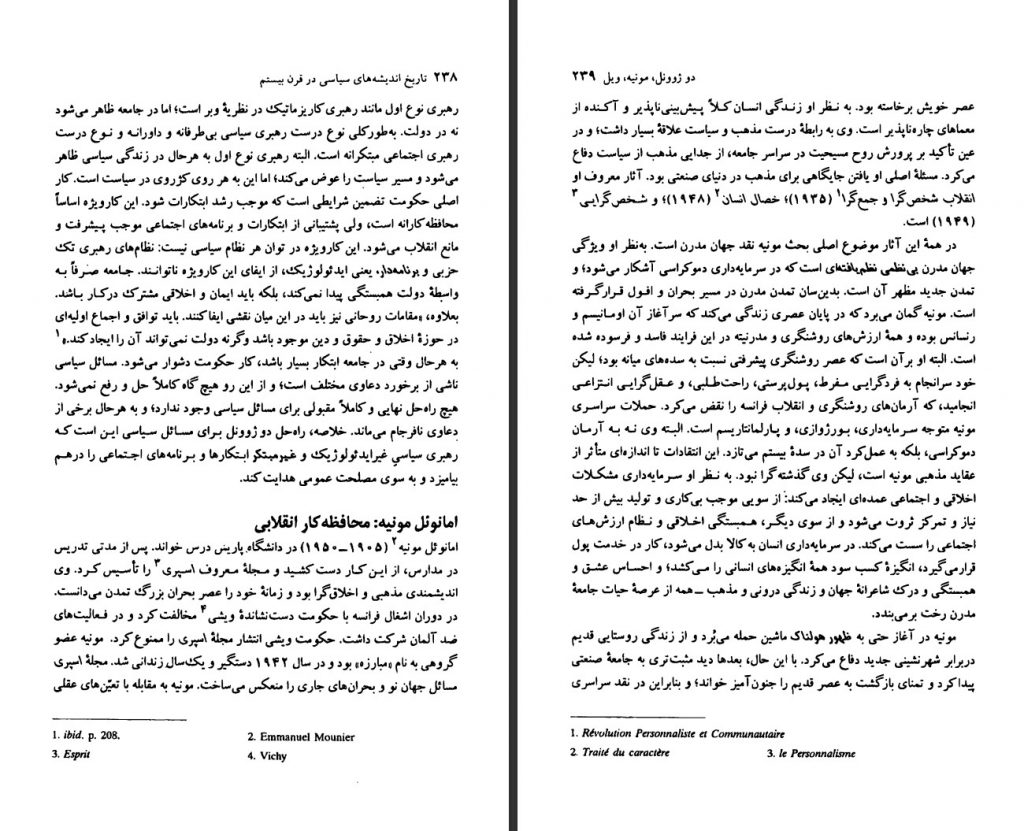 ۲۳۸ تاریخ اندیشه‌های سیاسی در قرن بیستم
رهبری نوع اول مانند رهبری کاریزماتیک در نظریهٔ وبر است؛ اما در جامعه ظاهر می‌شود
نه در دولت. به‌طورکلی نوع درست رهبری سیاسی بی‌طرفانه و داورانه و نوع درست
رهبری اجتماعی مبتکرانه است. البته رهبری نوع اول به هرحال در زندگی سیاسی ظاهر
می‌شود و مسیر سیاست را عوض می‌کند؛ اما این به هر روی کژروی در سیاست است. کار
اصلی حکومت تضمین شرایطی است که موجب رشد ابتکارات شود. این کارویژه اساساً
محافظه‌کارانه است، ولی پشتیبانی از ابتکارات و برنامه‌های اجتماعی موجب پیشرفت و
مانع انقلاب می‌شود. این کارویژه در توان هر نظام سیاسی نیست: نظام‌های رهبری تک
حزبی و برنامه‌دار، یعنی ایدئولوژیک، از ایفای این کارویژه ناتوانند. جامعه صرفاً به
واسطهٔ دولت همبستگی پیدا نمی‌کند، بلکه باید ایمان و اخلاقی مشترک درکار باشد.
بعلاوه، «مقامات روحانی نیز باید در این میان نقشی ایفاکنند. باید توافق و اجماع اولیه‌ای
در حوزهٔ اخلاق و حقوق و دین موجود باشد وگرنه دولت نمی‌تواند آن را ایجادکند.»۱
به هرحال وقتی در جامعه ابتکار بسیار باشد، کار حکومت دشوار می‌شود. مسائل سیاسی
ناشی از برخورد دعاوی مختلف است؛ و از این رو هیچ گاه کاملاً حل و رفع نمی‌شود.
هیچ راه‌حل نهایی و کاملاً مقبولی برای مسائل سیاسی وجود ندارد؛ و به هرحال برخی از
دعاوی نافرجام می‌ماند. خلاصه، راه‌حل دو ژوونل برای مسائل سیاسی این است که
رهبری سیاسیِ غیرایدئولوژیک و غیرمبتکر ابتکارها و برنامه‌های اجتماعی را درهم
بیامیزد و به سوی مصلحت عمومی هدایت کند.
امانوئل مونیه: محافظه‌کار انقلابی
امانوئل مونیه۲ (۱۹۰۵–۱۹۵۰) در دانشگاه پاریس درس خواند. پس از مدتی تدریس
در مدارس، از این کار دست کشید و مجلهٔ معروف اسپری۳ را تأسیس کرد. وی
اندیشمندی مذهبی و اخلاق‌گرا بود و زمانهٔ خود را عصر بحران بزرگ تمدن می‌دانست.
در دوران اشغال فرانسه با حکومت دست‌نشاندهٔ ویشی۴ مخالفت کرد و در فعالیت‌های
ضد آلمان شرکت داشت. حکومت ویشی انتشار مجلهٔ اسپری را ممنوع کرد. مونیه عضو
گروهی به نام «مبارزه» بود و در سال ۱۹۴۲ دستگیر و یک‌سال زندانی شد. مجلهٔ اسپری
مسائل جهان نو و بحران‌های جاری را منعکس می‌ساخت. مونیه به مقابله با تعیّن‌های عقلی
1. ibid. p. 208. 2. Emmanuel Mounier
3. Esprit 4. Vichy
دو ژوونل، مونیه، ویل ۲۳۹
عصر خویش برخاسته بود. به نظر او زندگی انسان کلاً پیش‌بینی‌ناپذیر و آکنده از
معماهای چاره‌ناپذیر است. وی به رابطهٔ درست مذهب و سیاست علاقهٔ بسیار داشت؛ و در
عین تأکید بر پرورش روح مسیحیت در سراسر جامعه، از جدایی مذهب از سیاست دفاع
می‌کرد. مسئلهٔ اصلی او یافتن جایگاهی برای مذهب در دنیای صنعتی بود. آثار معروف او
انقلاب شخص‌گرا و جمع‌گرا۱ (۱۹۳۵)؛ خصال انسان۲ (۱۹۴۸)؛ و شخص‌گرایی۳
(۱۹۴۹) است.
در همهٔ این آثار موضوع اصلی بحث مونیه نقد جهان مدرن است. به‌نظر او ویژگی
جهان مدرن بی‌نظمی نظم‌یافته‌ای است که در سرمایه‌داری دموکراسی آشکار می‌شود؛ و
تمدن جدید مظهر آن است. بدین‌سان تمدن مدرن در مسیر بحران و افول قرارگرفته
است. مونیه گمان می‌برد که در پایان عصری زندگی می‌کند که سرآغاز آن اومانیسم و
رنسانس بوده و همهٔ ارزش‌های روشنگری و مدرنیته در این فرایند فاسد و فرسوده شده
است. البته او برآن است که عصر روشنگری پیشرفتی نسبت به سده‌های میانه بود؛ لیکن
خود سرانجام به فردگرایی مفرط، پول‌پرستی، راحت‌طلبی، و عقل‌گرایی انتزاعی
انجامید، که آرمان‌های روشنگری و انقلاب فرانسه را نقض می‌کرد. حملات سراسری
مونیه متوجه سرمایه‌داری، بورژوازی، و پارلمانتاریسم است. البته وی نه به آرمان
دموکراسی، بلکه به عمل‌کرد آن در سدهٔ بیستم می‌تازد. این انتقادات تا اندازه‌ای متأثر از
عقاید مذهبی مونیه است، لیکن وی گذشته‌گرا نبود. به نظر او سرمایه‌داری مشکلات
اخلاقی و اجتماعی عمده‌ای ایجاد می‌کند: از سویی موجب بی‌کاری و تولید بیش از حد
نیاز و تمرکز ثروت می‌شود و از سوی دیگر، همبستگی اخلاقی و نظام ارزش‌های
اجتماعی را سست می‌کند. در سرمایه‌داری انسان به کالا بدل می‌شود، کار در خدمت پول
قرارمی‌گیرد، انگیزهٔ کسب سود همهٔ انگیزه‌های انسانی را می‌کشد؛ و احساس عشق و
همبستگی و درک شاعرانهٔ جهان و زندگی درونی و مذهب ــ همه از عرصهٔ حیات جامعهٔ
مدرن رخت برمی‌بندد.
مونیه در آغاز حتی به ظهور هولناک ماشین حمله می‌بُرد و از زندگی روستایی قدیم
دربرابر شهرنشینی جدید دفاع می‌کرد. با این حال، بعدها دید مثبت‌تری به جامعهٔ صنعتی
پیداکرد و تمنای بازگشت به عصر قدیم را جنون‌آمیز خواند؛ و بنابراین در نقد سراسری
1. Révolution Personnaliste et Communautaire
2. Traité du caractère 3. le Personnalisme